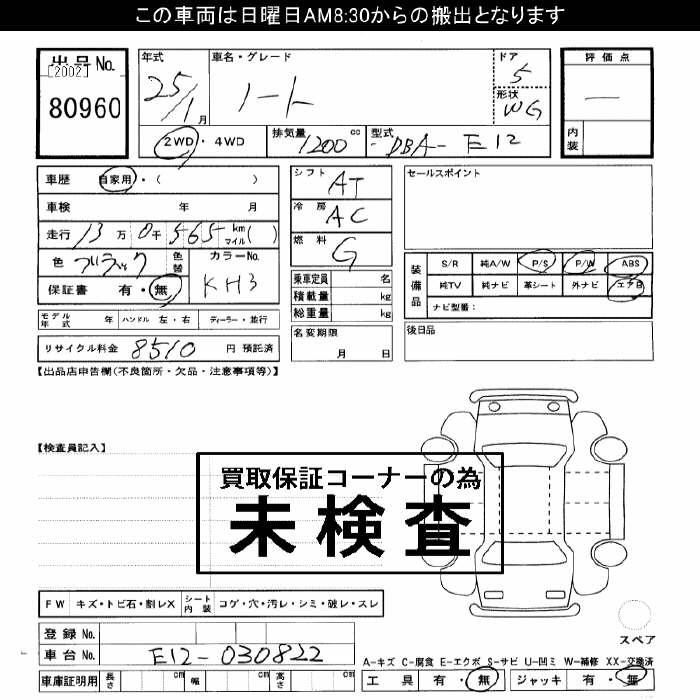 この車両は日曜日AM8:30からの搬出となります
出品No.
[2002]
80960
年式 25/1月
車名・グレード ノート
ドア 5
形状 WG
2WD・4WD 排気量 1200 cc 型式 DBA-E12
評価点 —
内装
車歴 自家用・( )
車検 年 月
走行 13万0千565 km マイル( )
色 ブラック 色替 カラーNo. KH3
保証書 有・無
シフト AT
冷房 AC
燃料 G
乗車定員 名
積載量 kg
総重量 kg
名変期限 月 日
セールスポイント
装備品 S/R 純A/W P/S P/W ABS
純TV 純ナビ 革シート 外ナビ エアB
ナビ型番:
後日品
モデル年式 年 ハンドル 左・右 ディーラー・並行
リサイクル料金 8510 円 預託済
【出品店申告欄(不良箇所・欠品・注意事項等)】
【検査員記入】
買取保証コーナーの為
未検査
FW キズ・トビ石・割レX シート内装 コゲ・穴・汚レ・シミ・破レ・スレ
登録No.
車台No. E12-030822
車庫証明用 長さ cm 幅 cm 高さ cm
スペア
A-キズ C-腐食 E-エクボ S-サビ U-凹ミ W-補修 XX-交換済
工具 有・無 ジャッキ 有・無